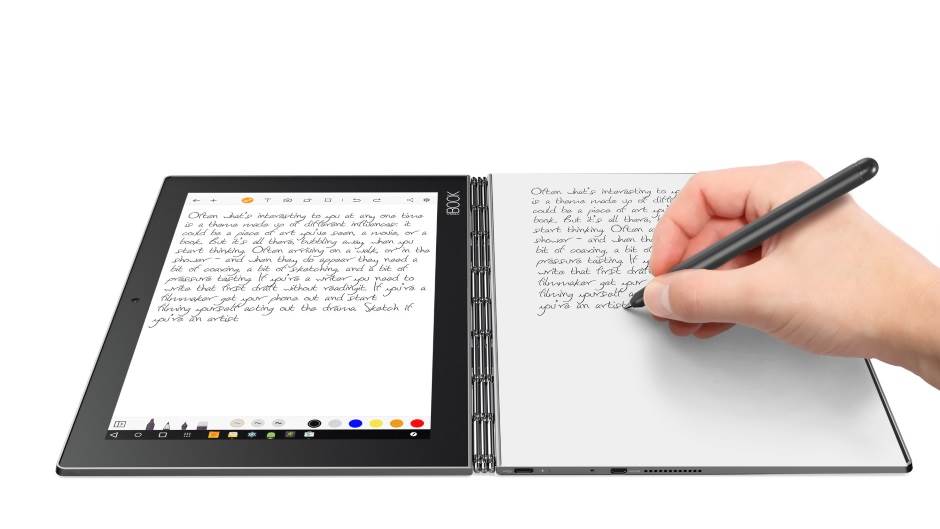 Often what's interesting to you at any one time
is a theme made up of different influences: it
could be a piece of art you've seen, a movie, or a
book. But it's all there, bubbling away when you
start thinking. Often arriving on a walk, or in the
shower - and when they do appear they need a
bit of coaxing, a bit of sketching, and a bit of
pressure tasting. If you're a writer you need to
write that first draft without readingit. If you're a
filmmaker get your phone out and start
filming yourself acting out the drama. Sketch if
you're an artist.
BOOK
Often what's interesting to
is a theme made up of
could be a piece of art you
book. But it's all there,
start thinking. Often a
shower - and when the
bit of coaxing, a bit of
pressure tasting. If y
write that first draft
filmmaker get your
filming yourself a
you're an artist